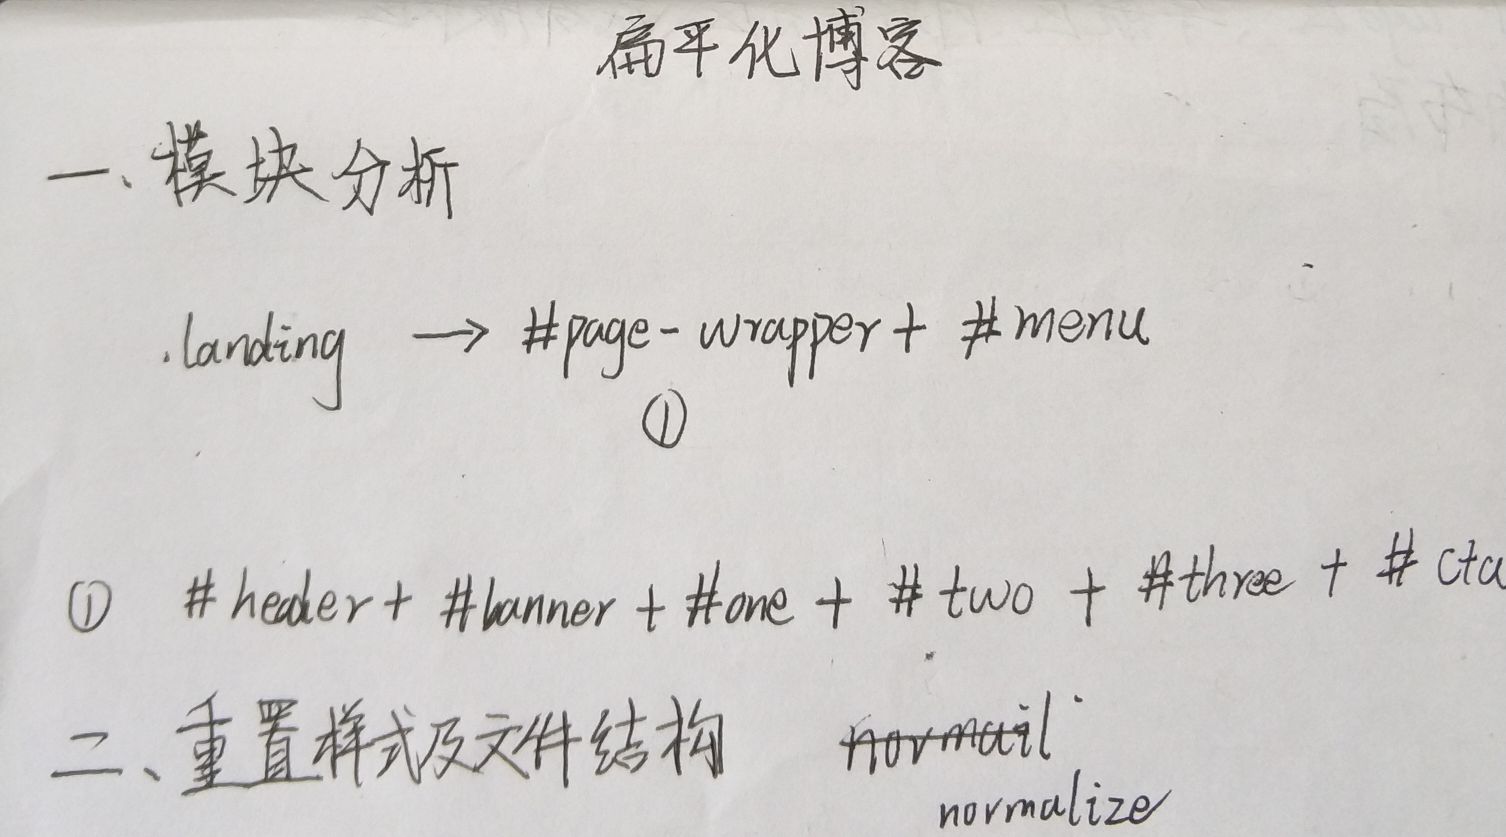 扁平化博客
一、模块分析
.landing → #page-wrapper + #menu
①
① #header + #banner + #one + #two + #three + #cta
二、重置样式及文件结构 normail
normalize